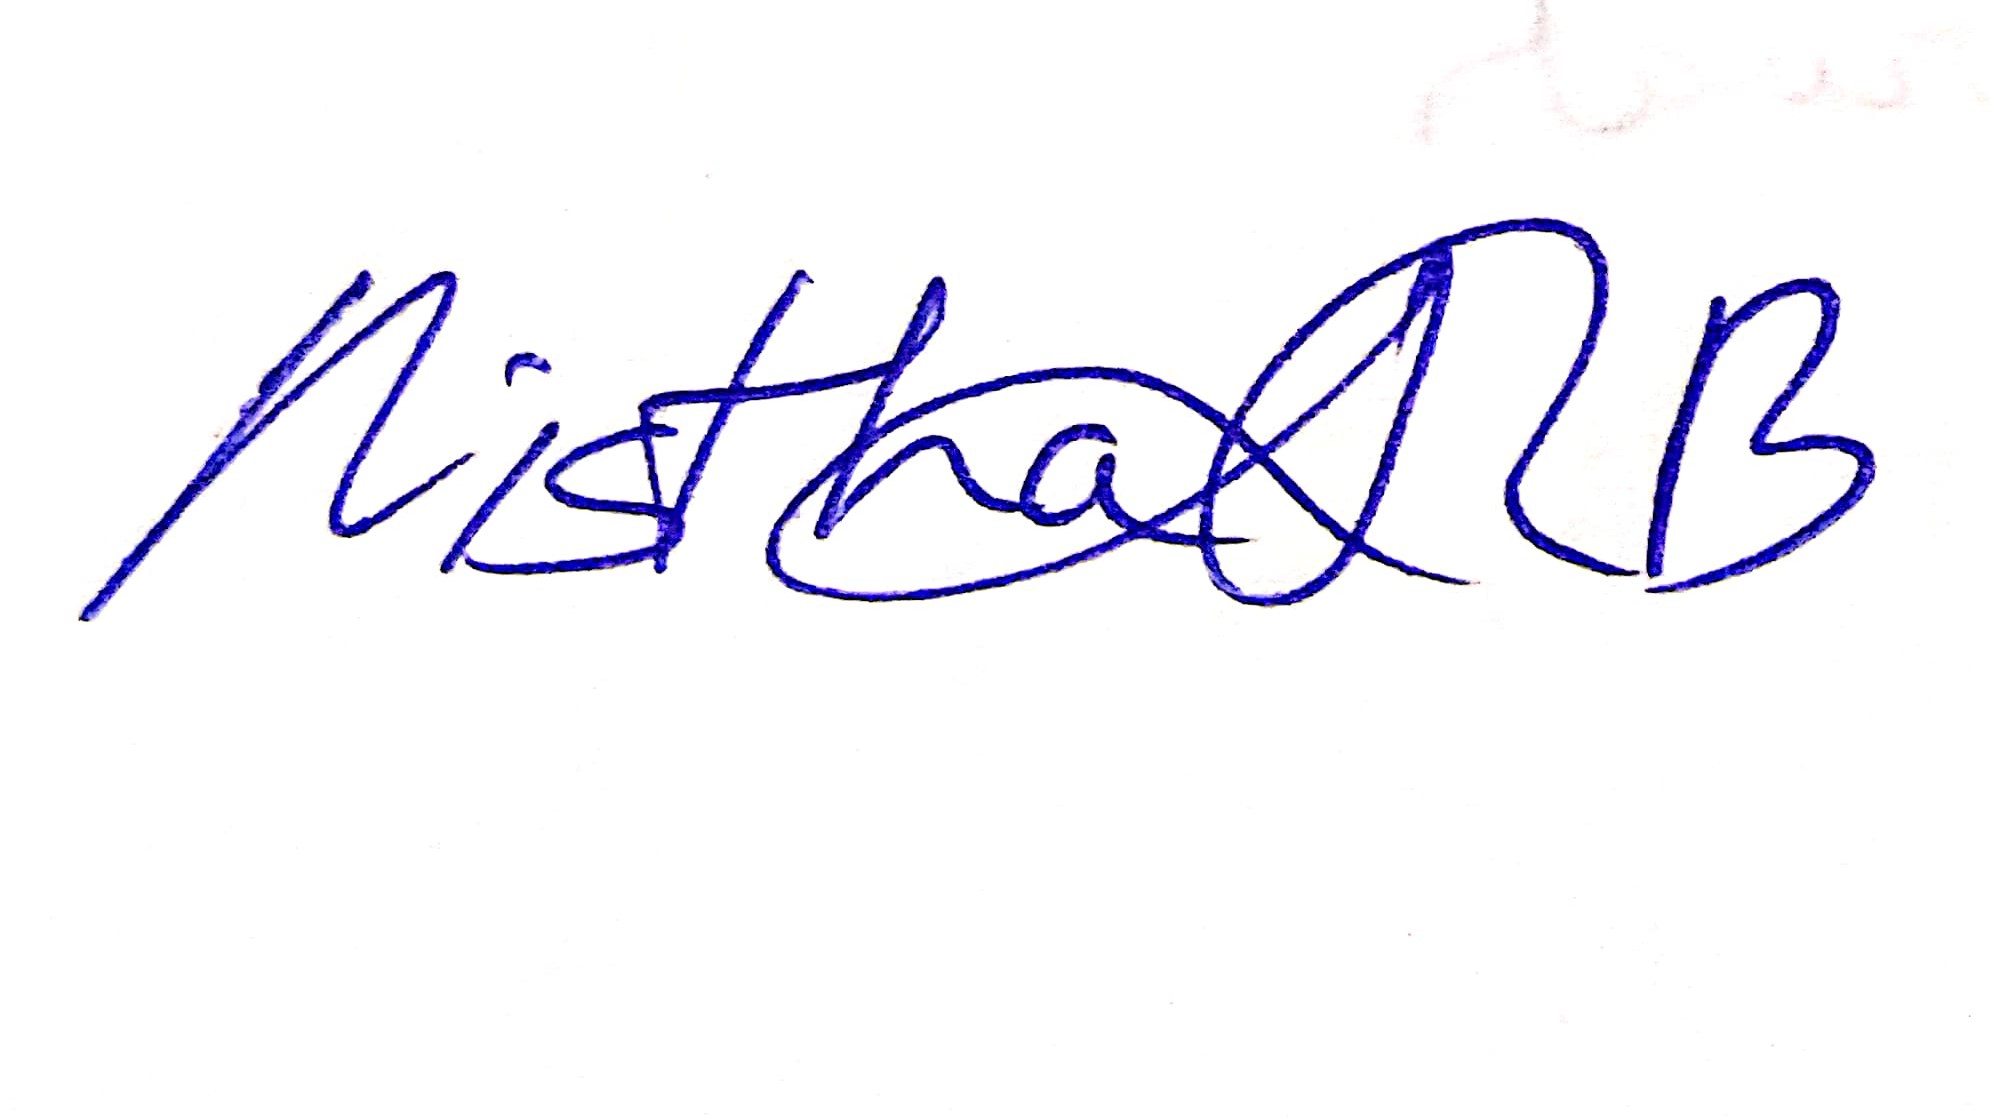 Nistha R B